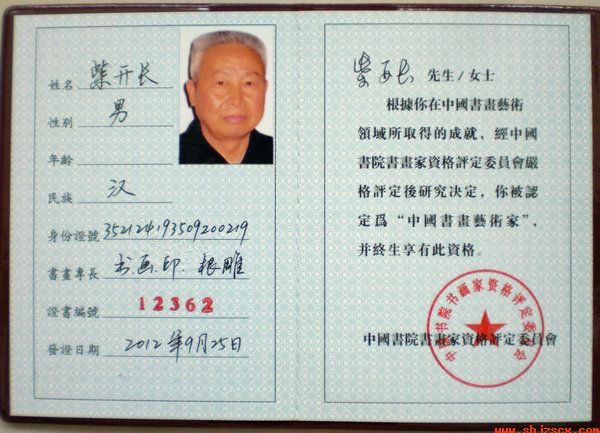 姓名 柴开长
性别 男
年齡
民族 汉
身份證號 352124193509200219
書畫專長 书.画.印.根雕
證書編號 12362
發證日期 2012年9月25日
柴开长 先生/女士
根據你在中國書畫藝術
領域所取得的成就，經中國
書院書畫家資格評定委員會嚴
格評定後研究决定，你被認
定爲“中國書畫藝術家”，
并終生享有此資格。
中国书院书画家资格评定委员会
中國書院書畫家資格評定委員會
www.shjzscx.com